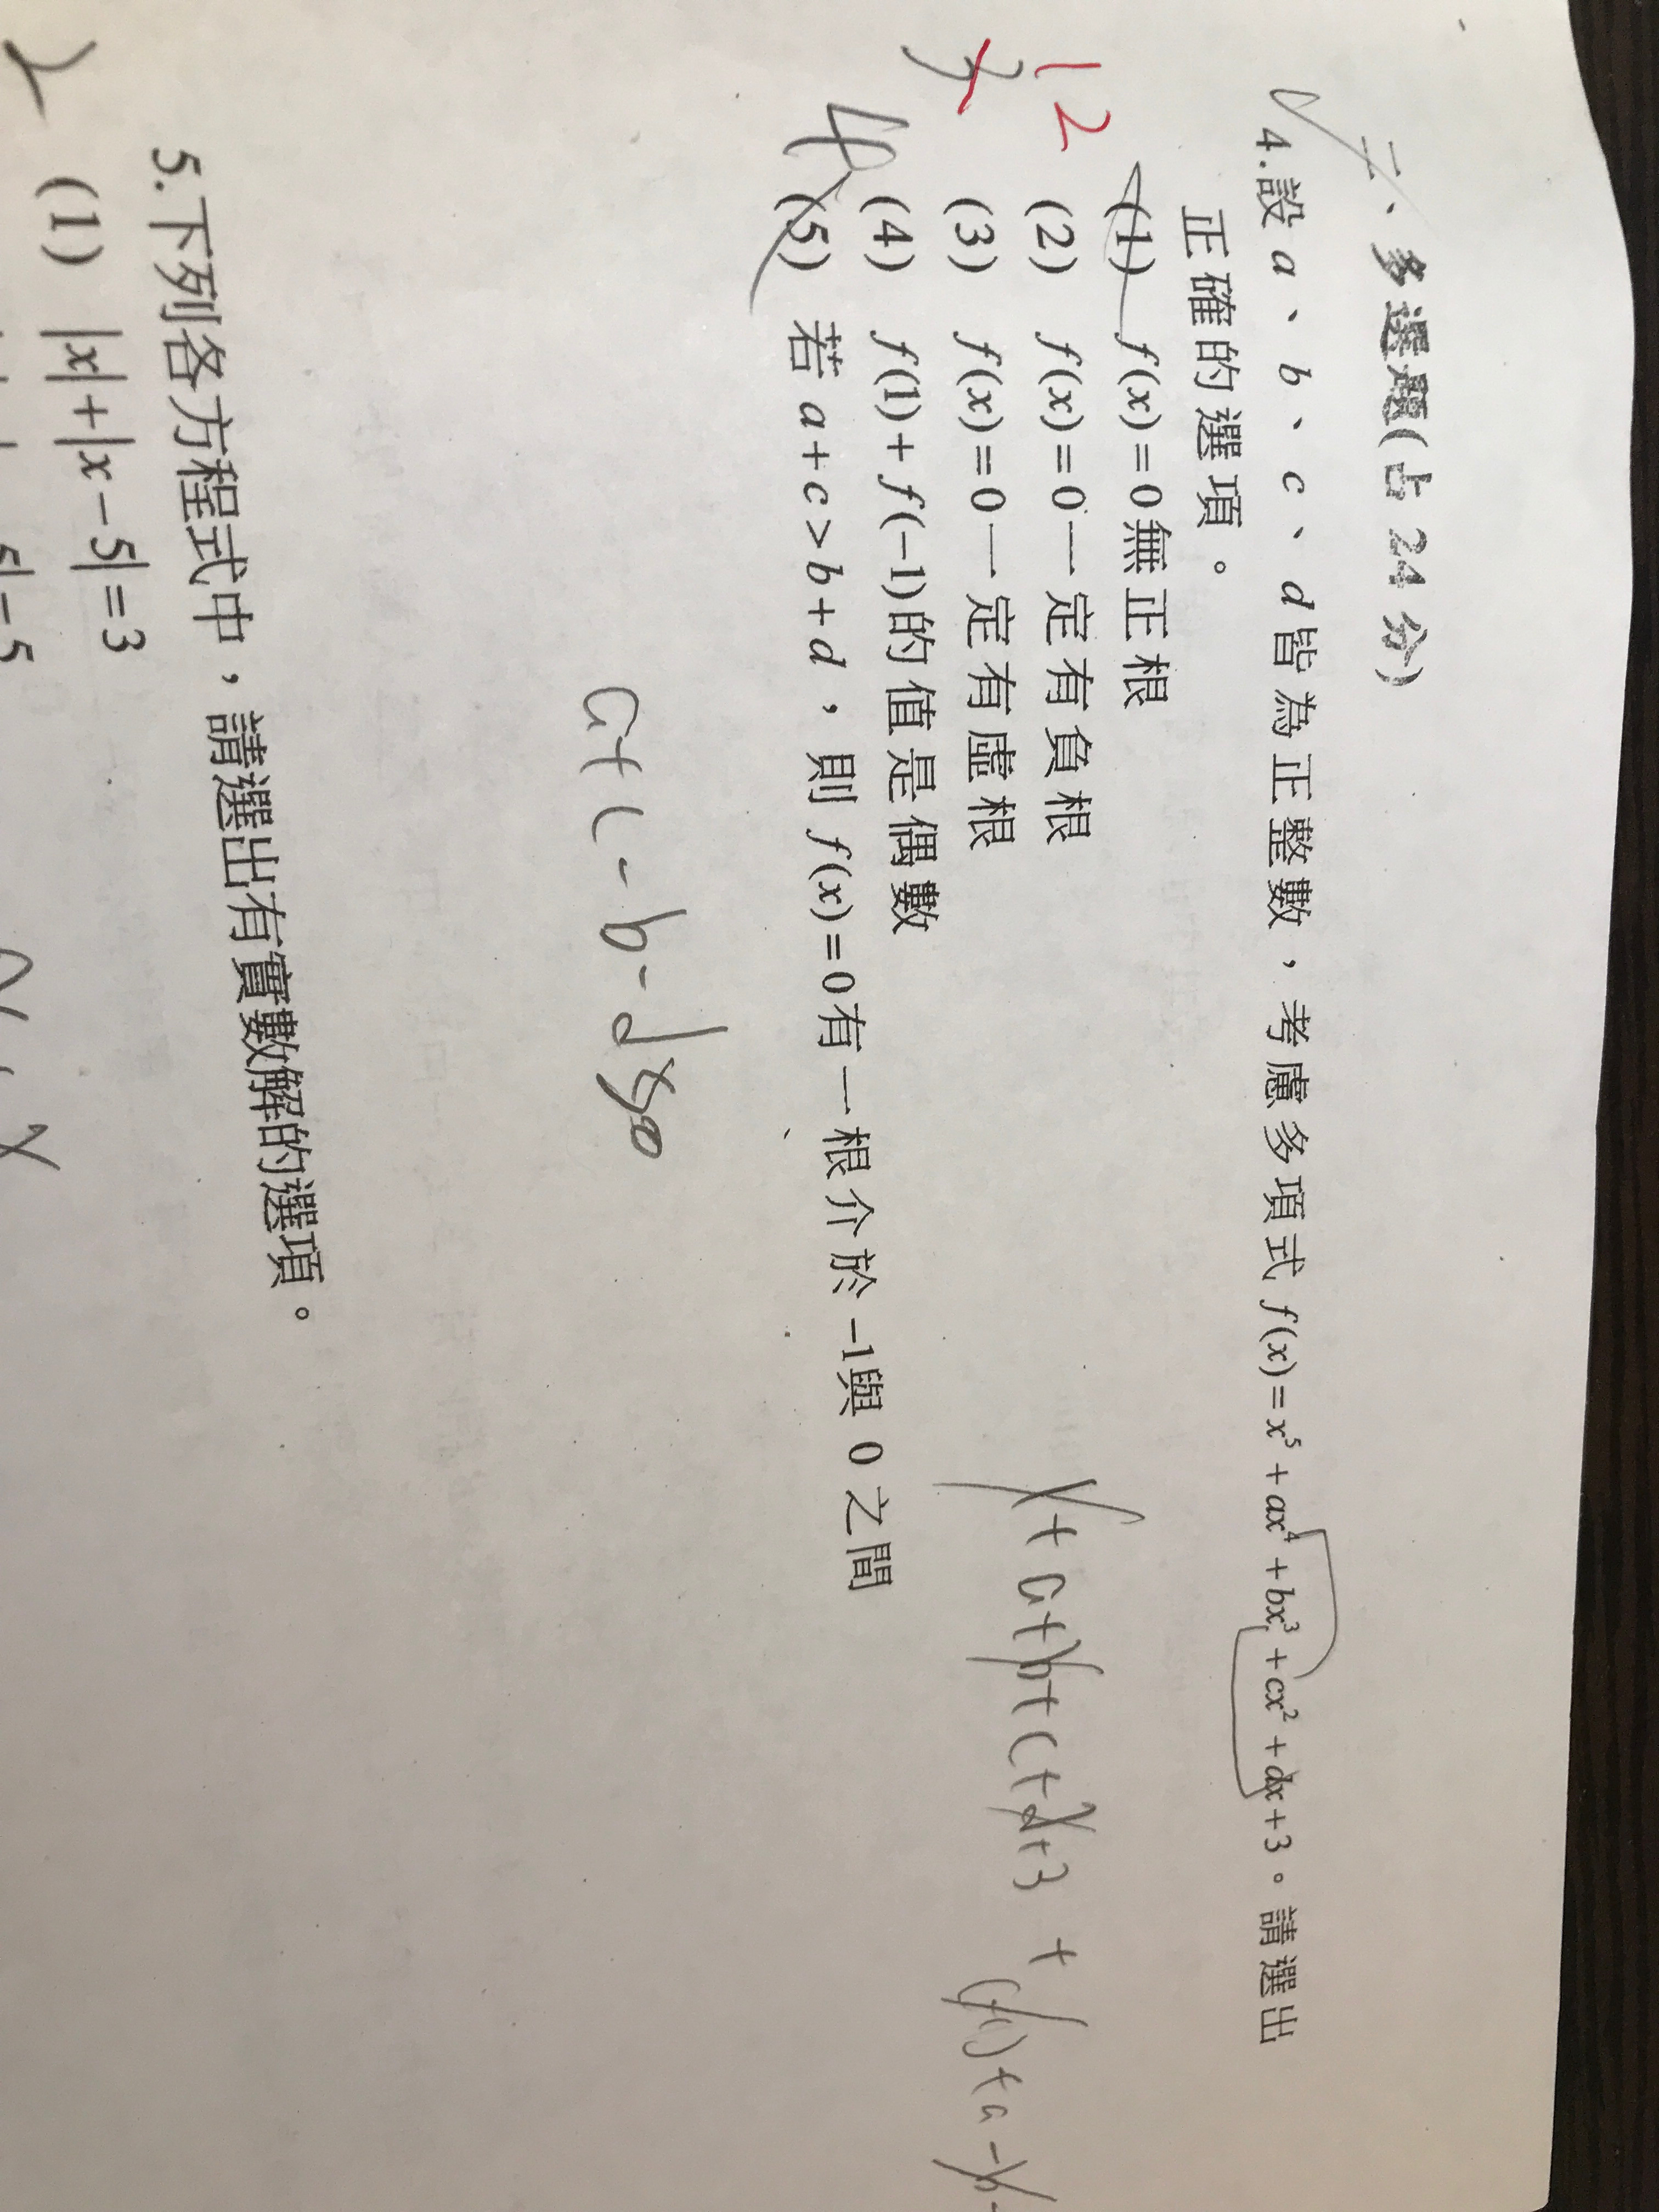 二、多選題(占 24 分)
4.設 a、b、c、d 皆為正整數，考慮多項式 f(x)=x⁵+ax⁴+bx³+cx²+dx+3。請選出
正確的選項。
(1) f(x)=0無正根
(2) f(x)=0一定有負根
(3) f(x)=0一定有虛根
(4) f(1)+f(-1)的值是偶數
(5) 若 a+c>b+d，則 f(x)=0有一根介於-1與 0 之間
12
4
1+a+b+c+d+3 +
(-1)+a-b-
a+c-b-d>0
5.下列各方程式中，請選出有實數解的選項。
(1) |x|+|x-5|=3